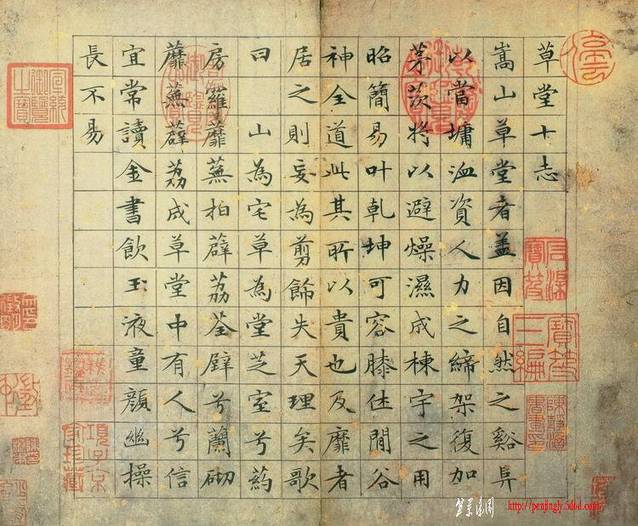 草堂十志
嵩山草堂者盖因自然之谿阜
以當墉洫資人力之締架復加
茅茨将以避燥濕成棟宇之用
昭簡易叶乾坤可容膝休閒谷
神全道此其所以貴也及靡者
居之則妄為剪餝失天理矣歌
曰 山為宅草為堂芝室兮葯
房羅蘼蕪拍薜荔荃壁兮蘭砌
蘼蕪薜荔成草堂中有人兮信
宜常讀金書飲玉液童顏幽操
長不易
石渠寶笈
寶笈三編
項子京家珍藏
http://penjingly.5d6d.com/